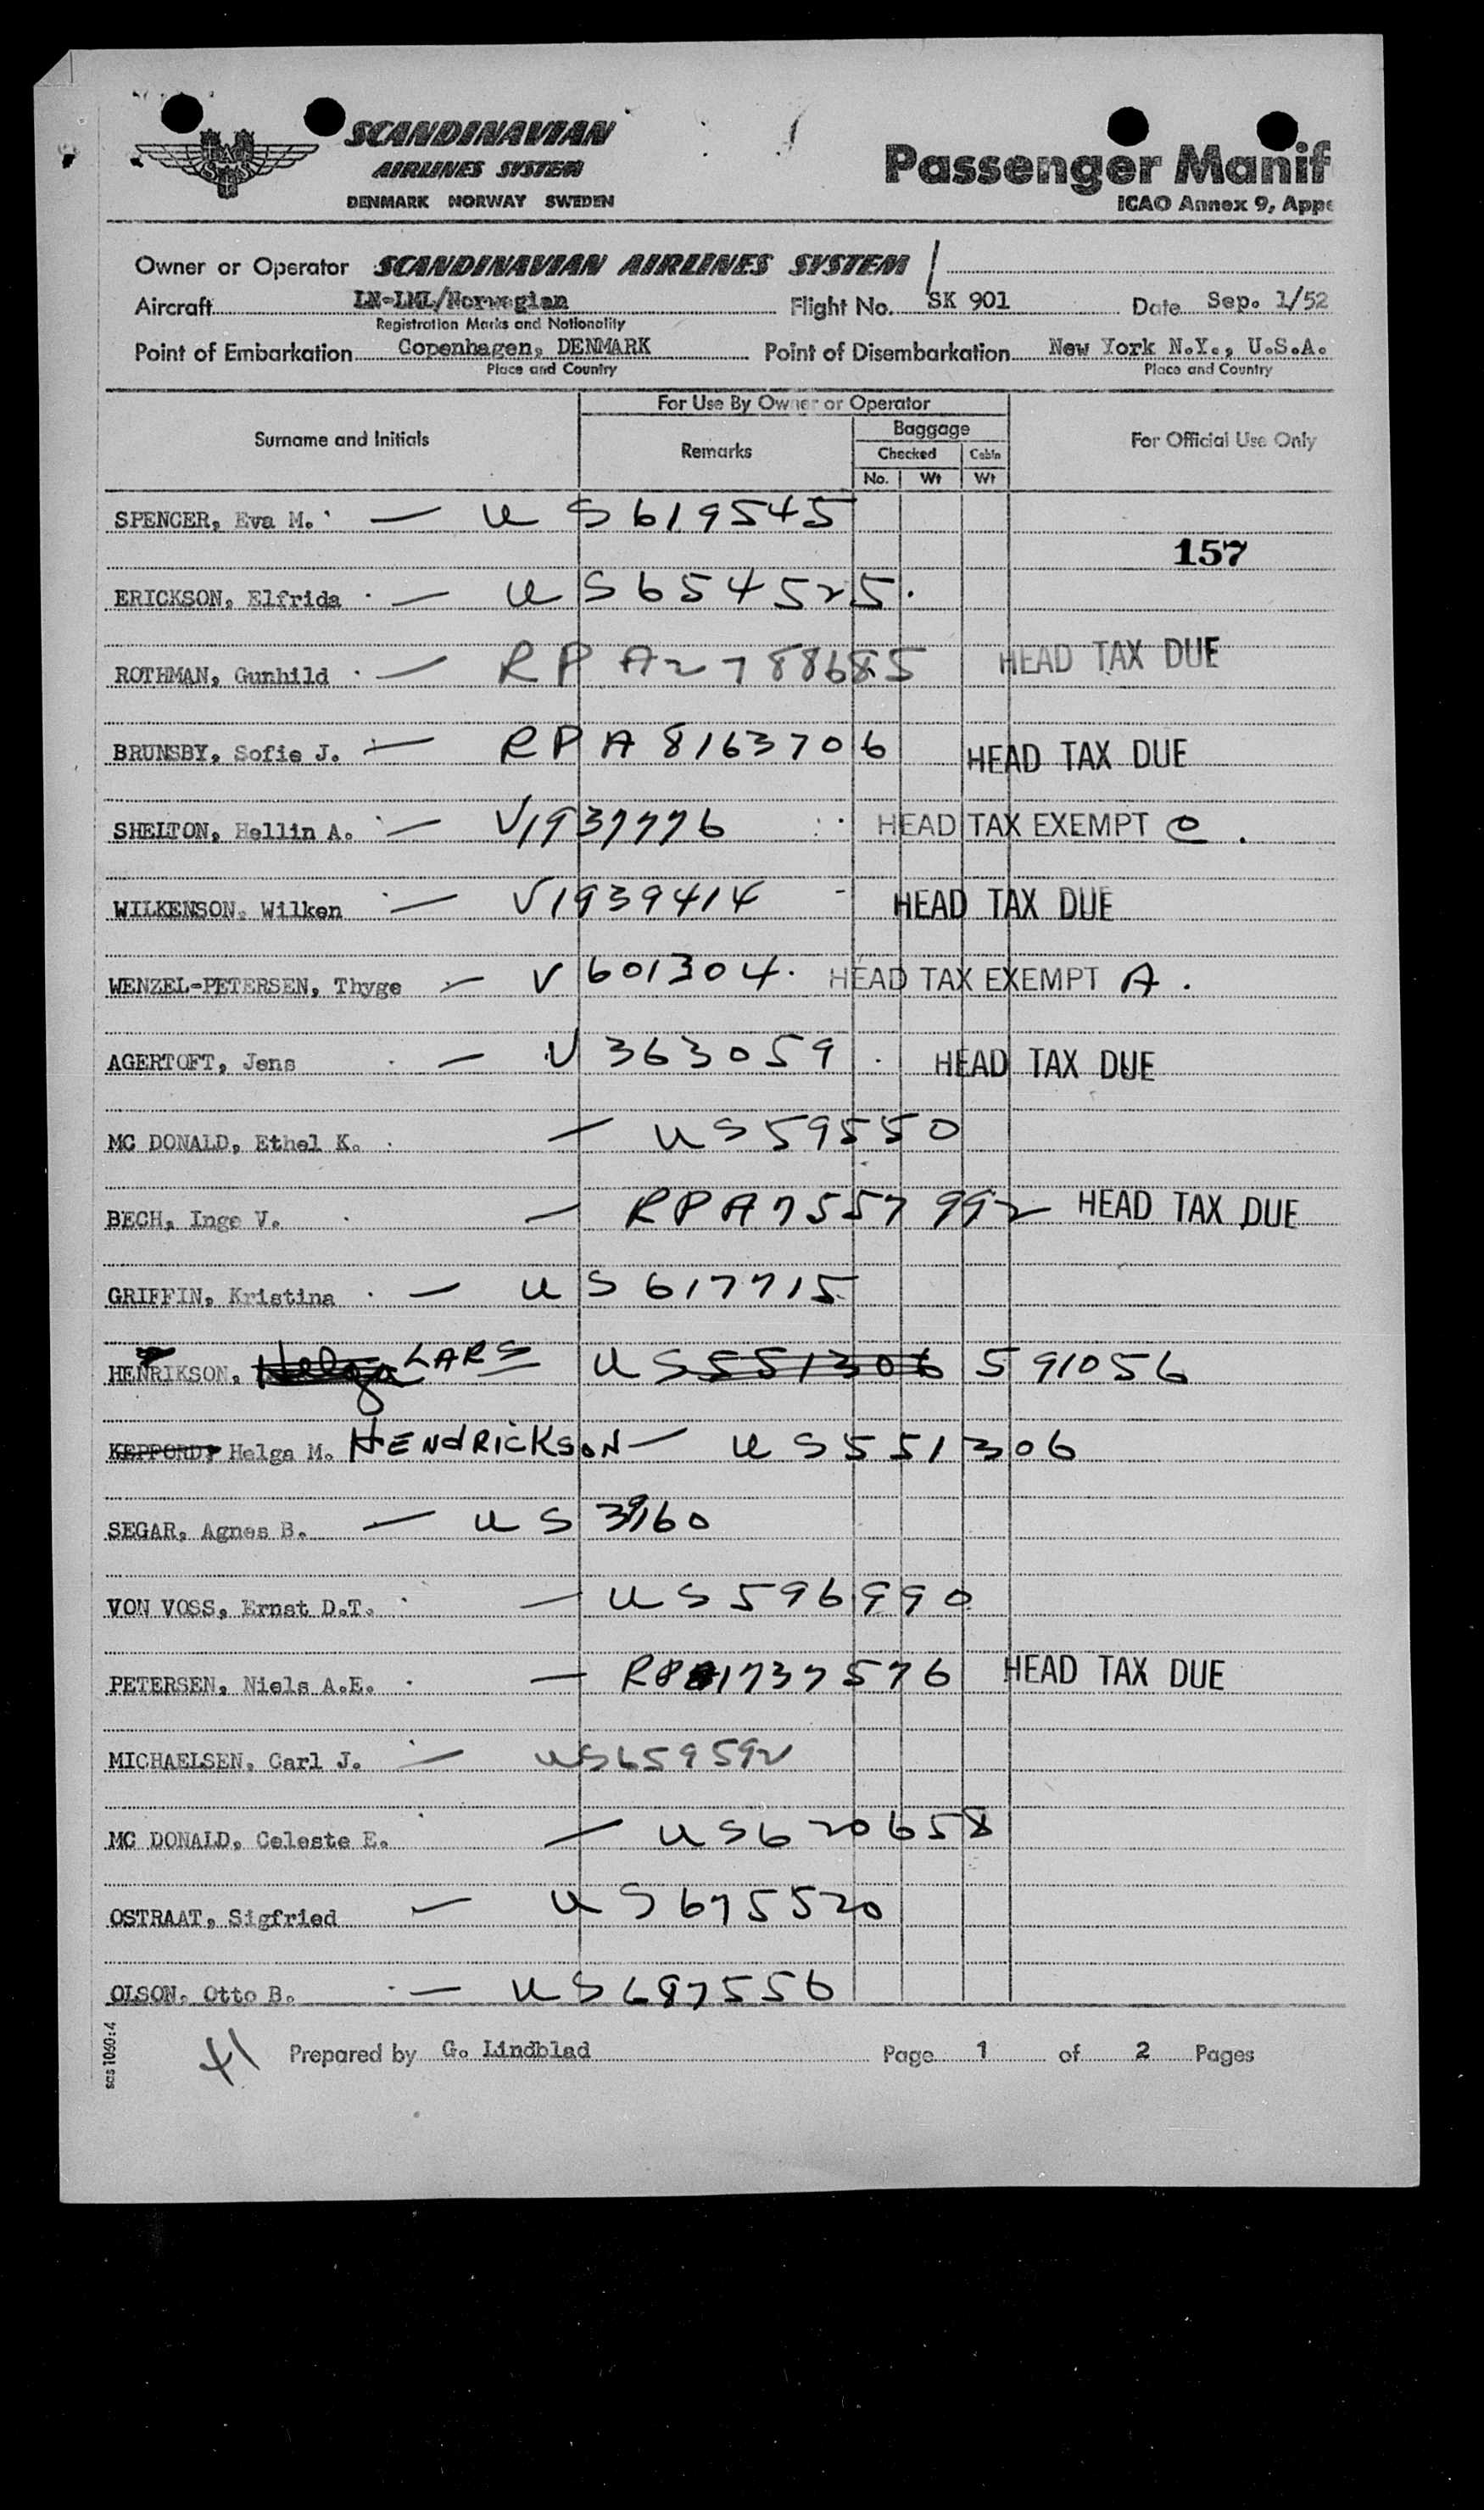 SCANDINAVIAN
AIRLINES SYSTEM
DENMARK NORWAY SWEDEN
SAS
Passenger Manif
ICAO Annex 9, Appe
Owner or Operator SCANDINAVIAN AIRLINES SYSTEM
Aircraft LN-LML/Norwegian Flight No. SK 901 Date Sep. 1/52
Registration Marks and Nationality
Point of Embarkation Copenhagen, DENMARK Point of Disembarkation New York N.Y., U.S.A.
Place and Country Place and Country
Surname and Initials
For Use By Owner or Operator
Remarks
Baggage
Checked Cabin
No. Wt Wt
For Official Use Only
SPENCER, Eva M. — US 619545
157
ERICKSON, Elfrida — US 654525
ROTHMAN, Gunhild — RP A2788685 HEAD TAX DUE
BRUNSBY, Sofie J. — RP A8163706 HEAD TAX DUE
SHELTON, Hellin A. — V1937776 HEAD TAX EXEMPT C.
WILKENSON, Wilken — V1939414 HEAD TAX DUE
WENZEL-PETERSEN, Thyge — V 601304. HEAD TAX EXEMPT A.
AGERTOFT, Jens — V 363059 HEAD TAX DUE
MC DONALD, Ethel K. — US 59550
BECH, Inge V. — RP A7557992 HEAD TAX DUE
GRIFFIN, Kristina — US 617715
HENRIKSON, Helga LARS US 551306 591056
KEPFORD, Helga M. HENDRICKSON — US 551306
SEGAR, Agnes B. — US 3960
VON VOSS, Ernst D.T. — US 596990
PETERSEN, Niels A.E. — RP A1737576 HEAD TAX DUE
MICHAELSEN, Carl J. — US 659592
MC DONALD, Celeste E. — US 620658
OSTRAAT, Sigfried — US 675520
OLSON, Otto B. — US 687556
41 Prepared by G. Lindblad Page 1 of 2 Pages
sas 1060:4